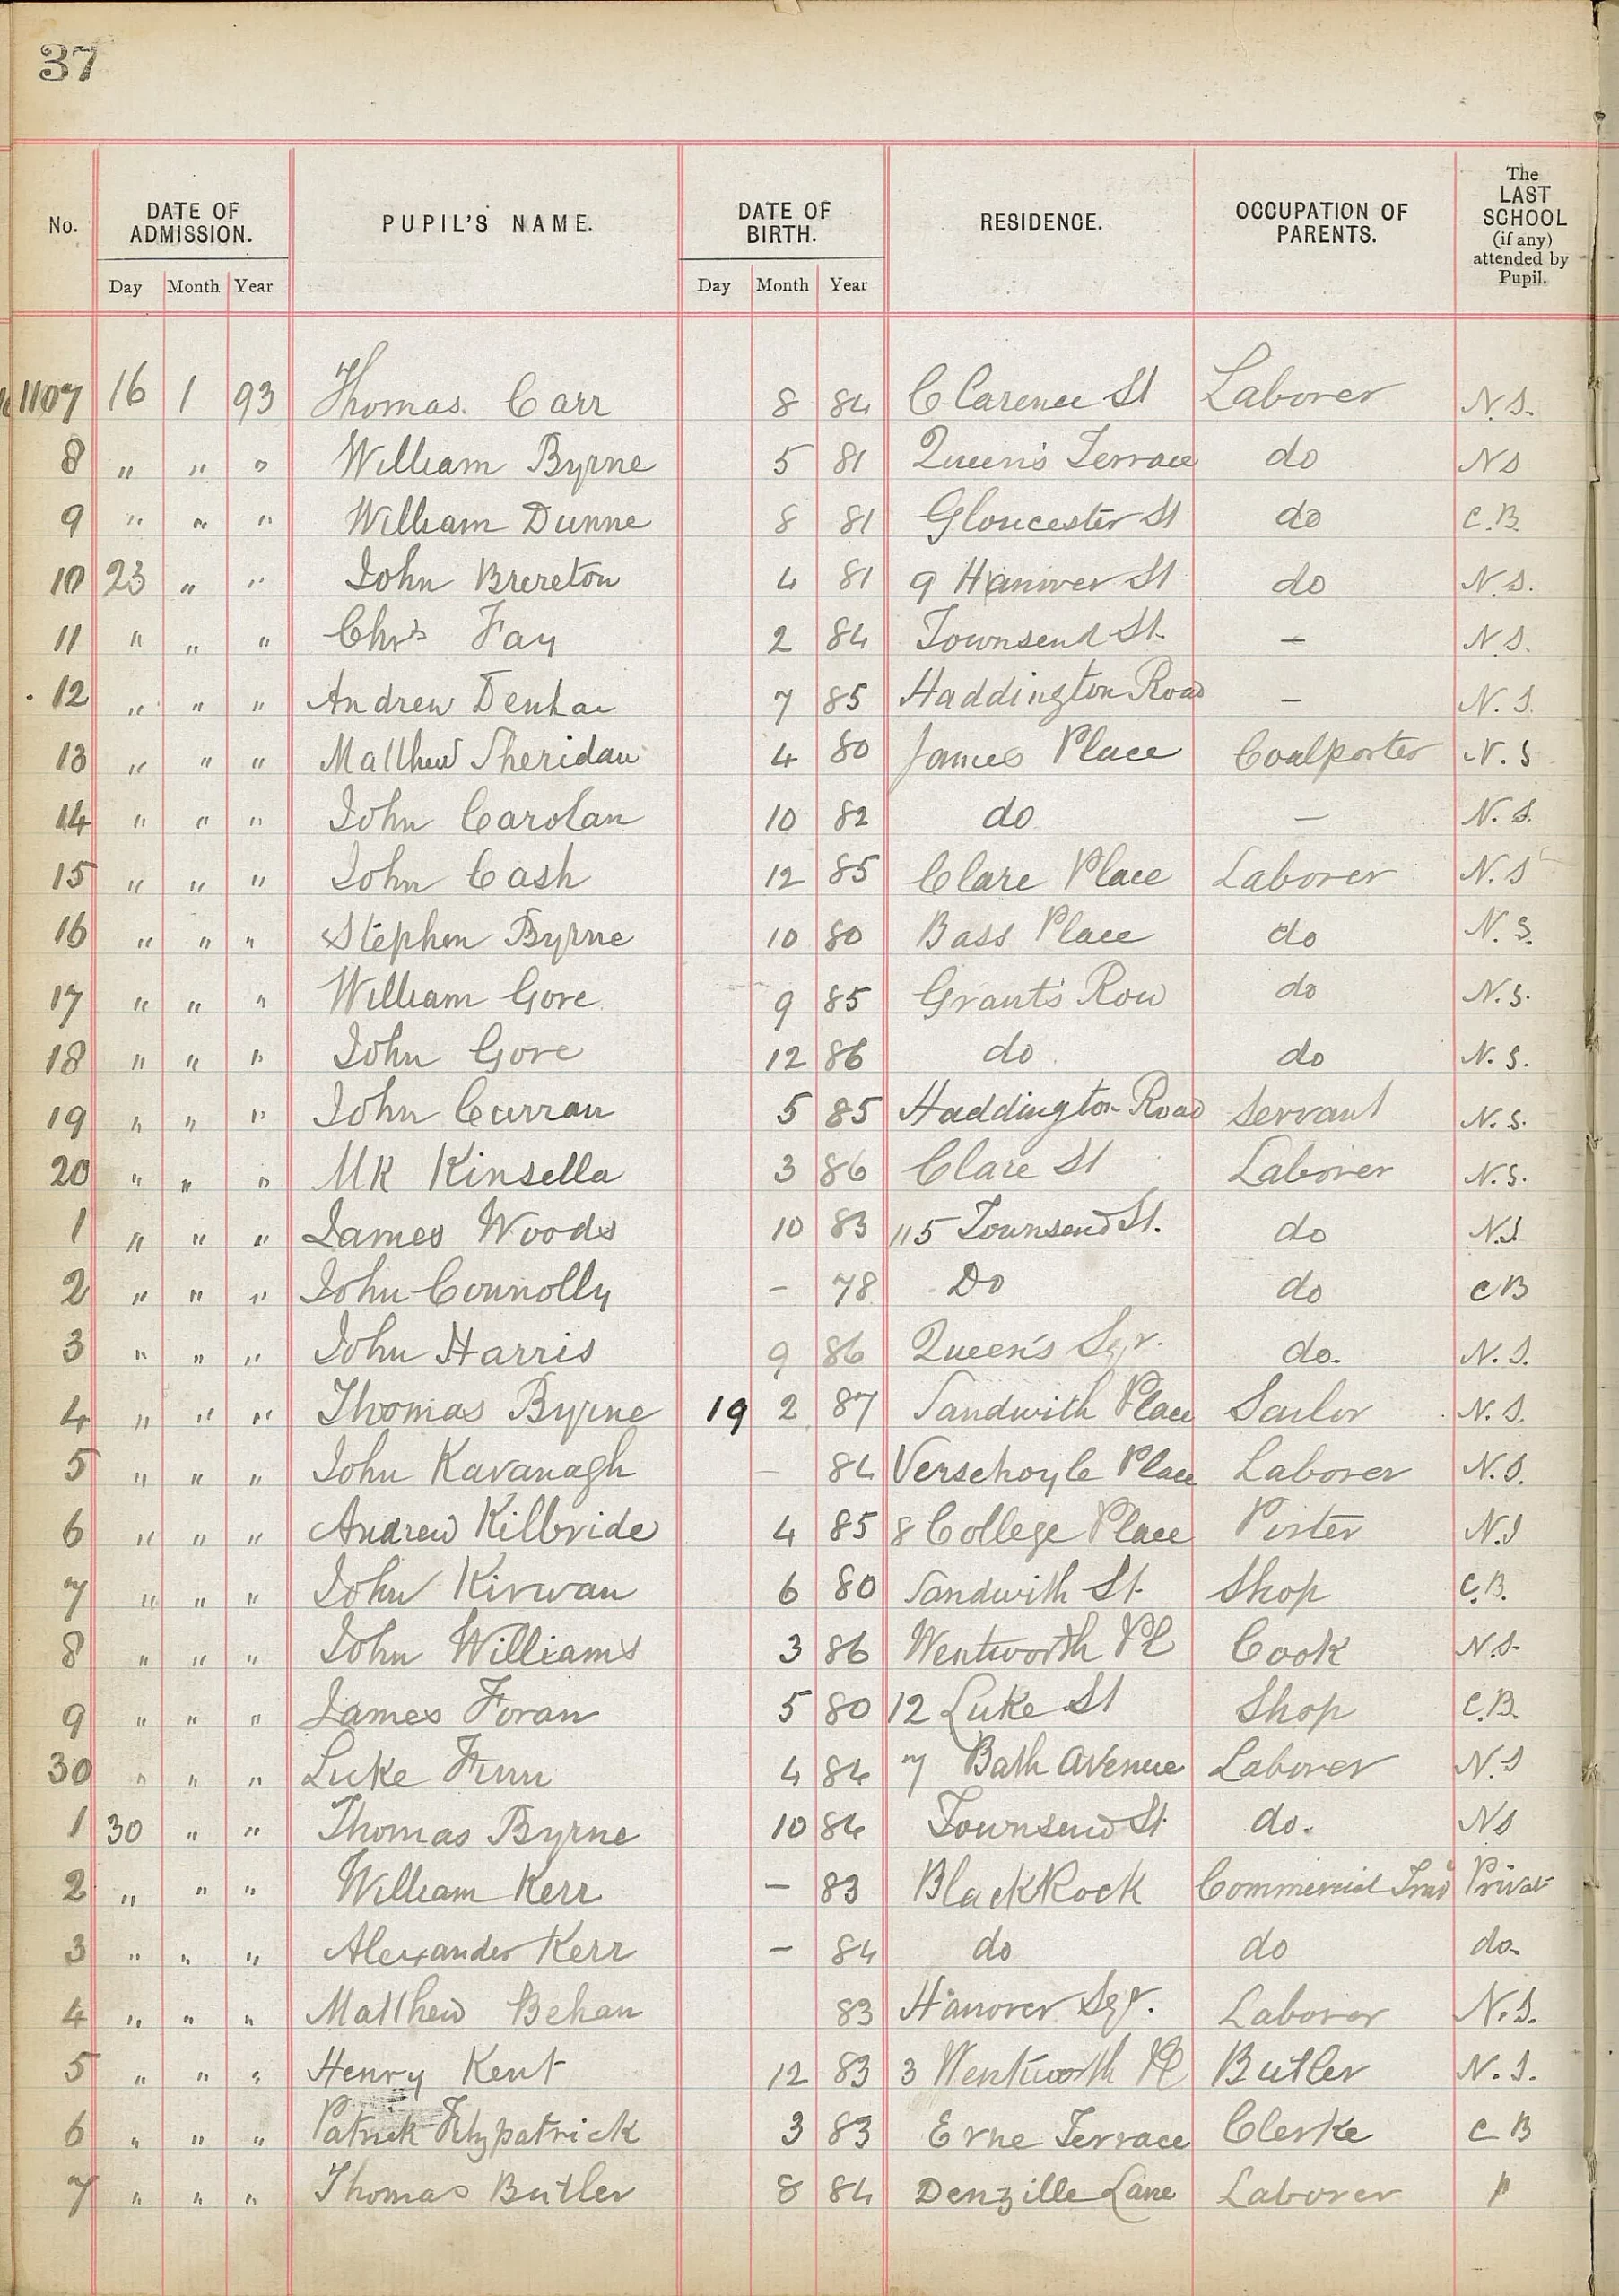 37
No. DATE OF ADMISSION. PUPIL'S NAME. DATE OF BIRTH. RESIDENCE. OCCUPATION OF PARENTS. The LAST SCHOOL (if any) attended by Pupil.
Day Month Year Day Month Year
1107 16 1 93 Thomas Carr 8 84 Clarence St Laborer N.S.
8 " " " William Byrne 5 81 Queen's Terrace do NS
9 " " " William Dunne 8 81 Gloucester St do C.B.
10 23 " " John Brereton 4 81 9 Hanover St do N.S.
11 " " " Chrs Fay 2 84 Townsend St. — N.S.
12 " " " Andrew 7 85 Haddington Road — N.S.
13 " " " Matthew Sheridan 4 80 James Place Coalporter N.S
14 " " " John Carolan 10 82 do — N.S.
15 " " " John Cash 12 85 Clare Place Laborer N.S
16 " " " Stephen Byrne 10 80 Bass Place do N.S.
17 " " " William Gore 9 85 Grant's Row do N.S.
18 " " " John Gore 12 86 do do N.S.
19 " " " John Curran 5 85 Haddington Road Servant N.S.
20 " " " Kinsella 3 86 Clare St Laborer N.S.
1 " " " James Woods 10 83 115 Townsend St. do N.S
2 " " " John Connolly – 78 Do do CB
3 " " " John Harris 9 86 Queen's Sqr. do. N.S.
4 " " " Thomas Byrne 19 2 87 Sandwith Place Sailor N.S.
5 " " " John Kavanagh – 84 Verschoyle Place Laborer N.S.
6 " " " Andrew Kilbride 4 85 8 College Place Porter N.S
7 " " " John Kirwan 6 80 Sandwith St. Shop C.B.
8 " " " John Williams 3 86 Wentworth Pl Cook N.S.
9 " " " James Foran 5 80 12 Luke St Shop C.B.
30 " " " Luke Finn 4 84 7 Bath Avenue Laborer N.S
1 30 " " Thomas Byrne 10 84 Townsend St. do. NS
2 " " " William Kerr – 83 BlackRock Commercial Trav Privat
3 " " " Alexander Kerr – 84 do do do.
4 " " " Matthew Behan 83 Hanover Sqr. Laborer N.S.
5 " " " Henry Kent 12 83 3 Wentworth Pl Butler N.S.
6 " " " Patrick Fitzpatrick 3 83 Erne Terrace Clerke C B
7 " " " Thomas Butler 8 84 Denzille Lane Laborer "